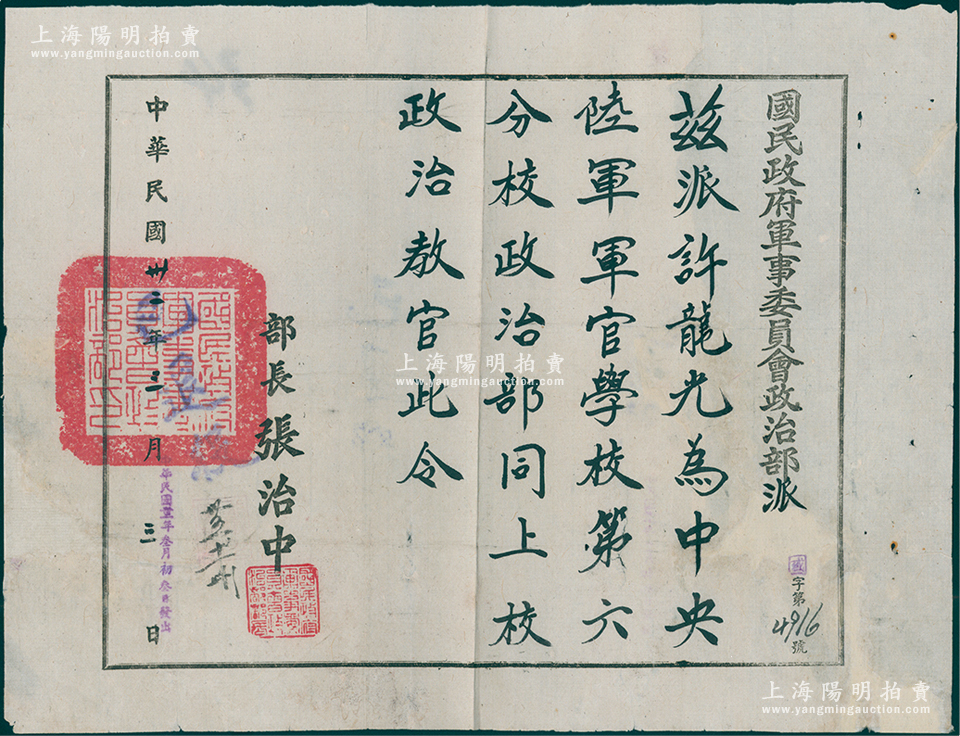 上海陽明拍賣
www.yangmingauction.com
國民政府軍事委員會政治部派
國字第4916號
茲派許龍光為中央
陸軍軍官學校第六
分校政治部同上校
政治教官此令
部長張治中
中華民國卅二年三月三日
上海陽明拍賣
www.yangmingauction.com
上海陽明拍賣
www.yangmingauction.com